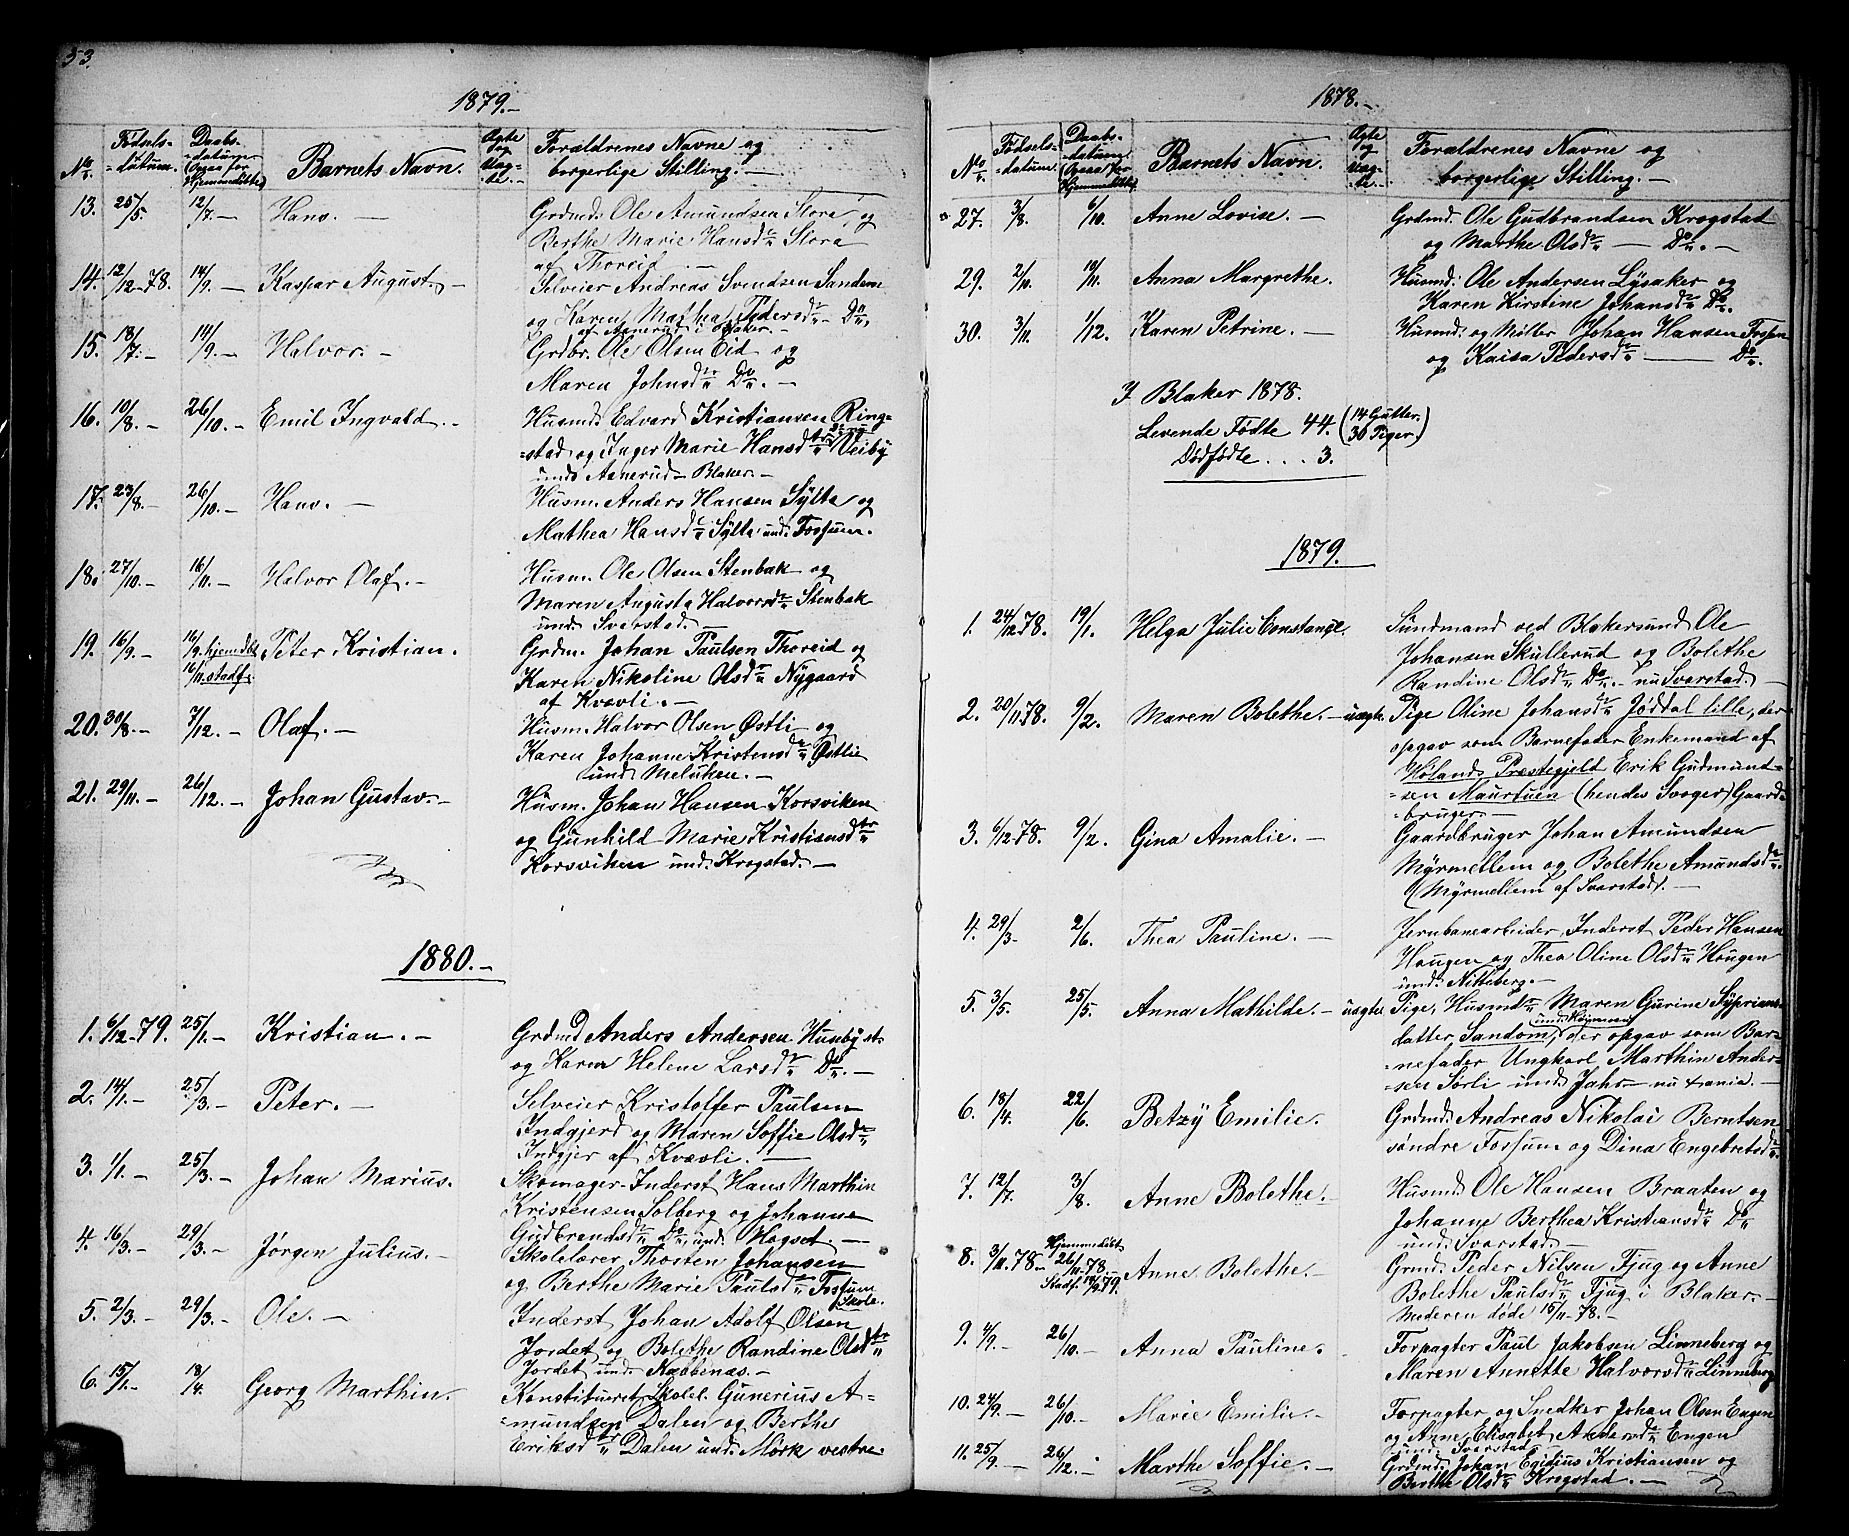 53.
1879.-
No
Fødsels-
datum.
Daabs-
datum
(Ogsaa for
Hjemmedøbte)
Barnets Navn.
Ægte
og
Uæg-
te.-
Forældrenes Navne og
borgerlige Stilling.-
13. 25/5 12/7.- Hans.- Grdmd. Ole Amundsen Slora, og
Berthe Marie Hansdtr Slora
af Thoreid.-
14. 12/12-78. 14/9.- Kaspar August.- Selveier Andreas Svendsen Sandem
og Karen Mathea Pedersdtr Do,
af Aanerud i Blaker.-
15. 13/7.- 14/9.- Halvor.- Grdbr. Ole Olsen Eid og
Maren Johnsdtr Do.-
16. 10/8.- 26/10.- Emil Ingvald.- Husmd. Edvard Kristiansen Ring-
=stad og Inger Marie Hansdtr Veiby
und. Aanerud Blaker.-
17. 23/8.- 26/10.- Hans.- Husm. Anders Hansen Sylta og
Mathea Hansdtr Sylta und. Fossum.
18. 27/10.- 16/11.- Halvor Olaf.- Husm. Ole Olsen Stenbak og
Maren Augusta Halvorsdtr Stenbak
und. Svarstad.-
19. 16/9.- 16/9. hjemdbt. Peter Kristian. Grdm. Johan Paulsen Thoreid og
16/11. stadf. Karen Nikoline Olsdtr Nygaard
af Kvævli.-
20. 30/8.- 7/12.- Olaf.- Husm. Halvor Olsen Østli og
Karen Johanne Kristensdtr Østlie
und. Melnken.-
21. 29/11.- 26/12.- Johan Gustav.- Husm. Johan Hansen Korsviken
og Gunhild Marie Kristiansdtr
Korsviken und. Krogstad.-
1880.-
1. 6/12-79. 25/1.- Kristian.- Grdmd Anders Andersen Huseby st.
og Karen Helene Larsdtr Do.-
2. 14/1.- 25/3.- Peter.- Selveier Kristoffer Paulsen
Indgjerd og Maren Soffie Olsdtr
Indgjer af Kvævli.-
3. 1/1.- 25/3.- Johan Marius. Skomager-Inderst Hans Marthin
Kristensen Solberg og Johanne
Gudbrandsdtr Do, und. Hogset.-
4. 16/3.- 29/3.- Jørgen Julius.- Skolelærer Thosten Johansen
og Berthe Marie Paulsdtr Fossum
Skole.
5. 2/3.- 29/3.- Ole.- Inderst Johan Adolf Olsen
Jordet og Bolethe Randine Olsdtr
Jordet und. Nabbenas.-
6. 15/1.- 18/4. Georg Marthin. Konstitueret Skolel. Gunerius A-
=mundsen Dalen og Berthe
Eriksdtr Dalen und. Mørk vestre.
1878.-
No
Fødsels-
=datum.
Daabs-
datum
(Ogsaa for
Hjemmedøbte)
Barnets Navn.
Ægte
og
Uæg-
te.-
Forældrenes Navne og
borgerlige Stilling.-
27. 3/8. 6/10. Anne Lovise.- Grdmd. Ole Gudbrandsen Krogstad
og Marthe Olsdtr - Do.-
29. 2/10. 10/11. Anna Margrethe. Husmd. Ole Andersen Lysaker og
Karen Kirstine Johansdtr Do.
30. 3/11. 1/12. Karen Petrine.- Husmd. og Møller Johan Hansen Fossen
og Kaisa Pedersdtr - Do.
I Blaker 1878.
Levende Fødte 44. (14 Gutter.
30 Piger.)
Dødfødte . . . 3.
1879.
1. 24/12 78. 19/1. Helga Julie Constanze. Sundmand ved Blakersund Ole
Johansen Skullerud og Bolethe
Randine Olsdtr Do.- nu Svarstad.-
2. 20/11 78. 9/2. Maren Bolethe.- uægte. Pige Oline Johansdtr Jøddal lille, der
opgav som Barnefader Enkemand af
Hølands Præstegjeld Erik Gudmund-
=sen Maurtuen (hendes Svoger) Gaard-
=bruger.-
3. 6/12 78. 9/2. Gina Amalie.- Gaardbruger Johan Amundsen
Myrmellem og Bolethe Amundsdtr
Myrmellem af Svarstad.-
4. 29/3. 2/6. Thea Pauline.- Jernbanearbeider, Inderst Peder Hansen
Haugen og Thea Oline Olsdtr Haugen
und. Nitteberg.-
5. 3/5. 25/5. Anna Mathilde.- uægte. Pige, Husmdtr Maren Gurine Syprians-
datter Sandom, der opgav som Bar-
=nefader Ungkarl Marthin Ander-
=sen Sørli und. Jahr - nu Xania.-
6. 18/4. 22/6. Betzy Emilie. Grdmd. Andreas Nikolai Berntsen
søndre Fossum og Dina Engebretsdtr
7. 12/7. 3/8. Anne Bolethe.- Husmd. Ole Hansen Braaten og
Johanne Berthea Kristiansdtr Do
und. Svarstad.-
8. 3/11. 78.- Hjemmedøbt
26/11-78.
Stadf. 14/9 79. Anne Bolethe.- Grmd. Peder Nilsen Fjug og Anne
Bolethe Paulsdtr Fjug i Blaker.-
Moderen døde 15/11-78.-
9. 4/9.- 26/10.- Anna Pauline.- Forpagter Paul Jakobsen Linneberg og
Maren Annette Halvorsdtr Linneberg
10. 24/9.- 26/10.- Marie Emilie.- Forpagter og Snedker Johan Olsen Engen
og Anne Elisabet Andersdtr Engen
und. Svarstad
11. 25/9.- 26/12.- Marthe Soffie.- Grdmd. Johan Egidius Kristiansen og
Berthe Olsdtr Krogstad.-